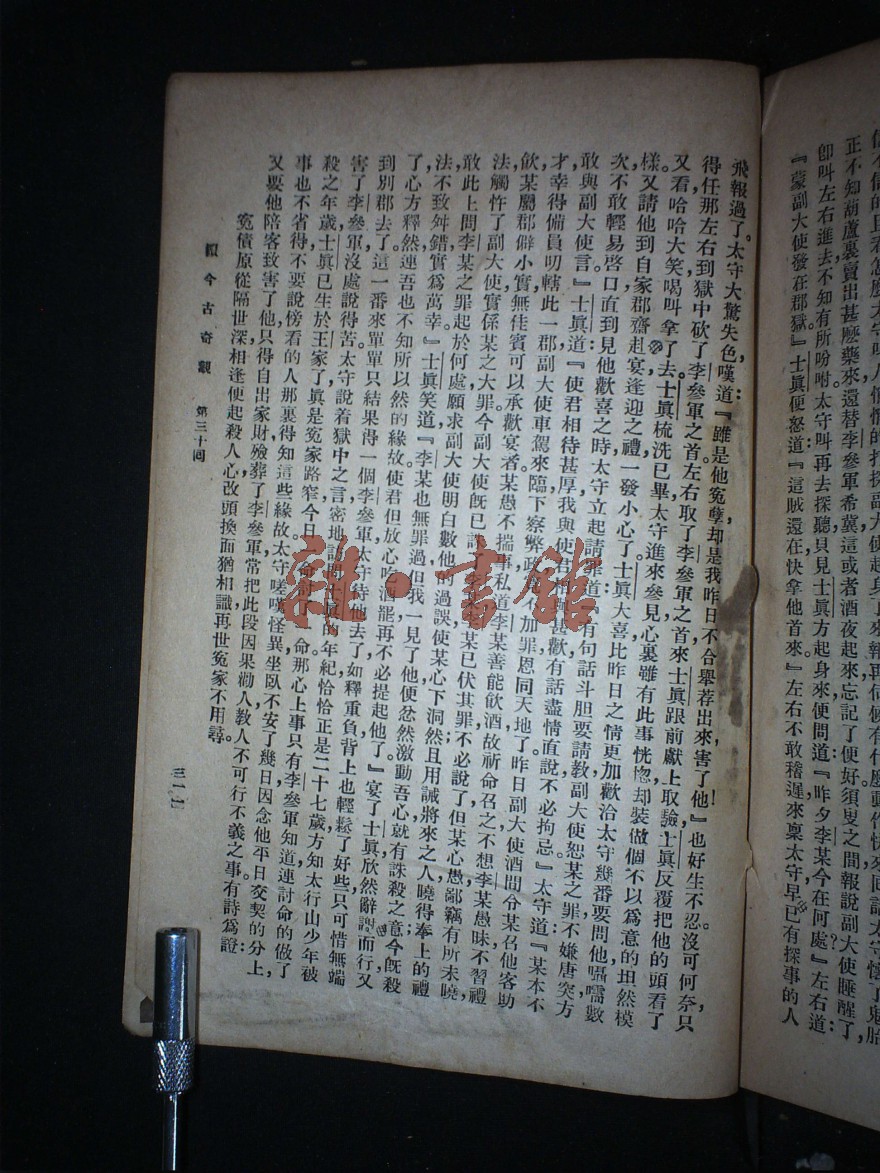 信不信的且看怎麼太守
打探副大使起身
來報再伺候有什麼動作快來回話太守懷了鬼胎
正不知葫蘆裏賣出甚麽藥來還替李參軍希冀這或者酒夜起來忘記了便好須臾之間報說副大使睡醒了，
卽叫左右進去不知有所吩咐太守叫再去探聽只見士眞方起身來便問道：『昨夕李某今在何處？』左右道：
『蒙副大使發在郡獄。』士眞便怒道：『這賊還在快拿他首來』左右不敢稽遲來稟太守早已有探事的人
飛報過了。太守大驚失色，嘆道：『雖是他冤孽，却是我昨日不合舉荐出來害了他！』也好生不忍。沒可何奈，只
得任那左右到獄中砍了李參軍之首。左右取了李參軍之首來士眞跟前獻上取驗。士眞反覆把他的頭看了
又看，哈哈大笑，喝叫拿了去。士眞梳洗已畢，太守進來參見，心裏雖有此事恍惚，却裝做個不以爲意的坦然模
樣，又請他到自家郡齋赴宴。逢迎之禮，一發小心了。士眞大喜，比昨日之情更加歡洽。太守幾番要問他，囁嚅數
次，不敢輕易啓口。直到見他歡喜之時，太守立起請罪道：『有句話斗胆要請教副大使。副大使恕某之罪，不嫌唐突，方
敢與副大使言。』士眞道：『使君相待甚厚，我與使君相與甚歡，有話盡情直說，不必拘忌。』太守道：『某本不
才，幸得備員叨轄此一郡。副大使車駕來臨，下察弊政，寬不加罪，恩同天地了。昨日副大使酒間令某召他客助
飲，某屬郡僻小，實無佳賓可以承歡宴者。某愚不揣事，私道李某善能飲酒，故祈命召之。不想李某愚昧，不習禮
法，觸忤了副大使，實係某之大罪。今副大使旣已誅了李某，李某已伏其罪，不必說了。但某心愚鄙，竊有所未曉，
敢此上問：李某之罪起於何處？願求副大使明白數他的過誤，使某心下洞然，且用誡將來之人，曉得奉上的禮
法，不致舛錯，實爲萬幸。』士眞笑道：『李某也無罪過，但我一見了他，便忿然激動吾心，就有誅殺之意。今旣殺
了，心方釋然。連吾也不知所以然的緣故。使君但放心吃酒罷，再不必提起他了。』宴了，士眞欣然辭謝而行，又
到別郡去了。這一番來，單單只結果得一個李參軍。太守待他去了，如釋重負，背上也輕鬆了好些。只可惜無端
害了李參軍，沒處說得苦。太守說着獄中之言，密地訪問士眞的年紀，恰恰正是二十七歲，方知太行山少年被
殺之年歲，士眞已生於王家了，眞是冤家路窄，今日一命討一命。那心上事只有李參軍知道，連討命的做了
事，也不省得，不要說傍看的人那裏得知這些緣故。太守嗟嘆怪異，坐臥不安了幾日。因念他平日交契的分上，
又要他陪客，致害了他，只得自出家財，殮葬了李參軍。常把此段因果勸人，教人不可行不義之事。有詩爲證：
冤債原從隔世深，相逢便起殺人心。改頭換面猶相識，再世冤家不用尋。
今古奇觀　第三十回
三一一
雜·書館